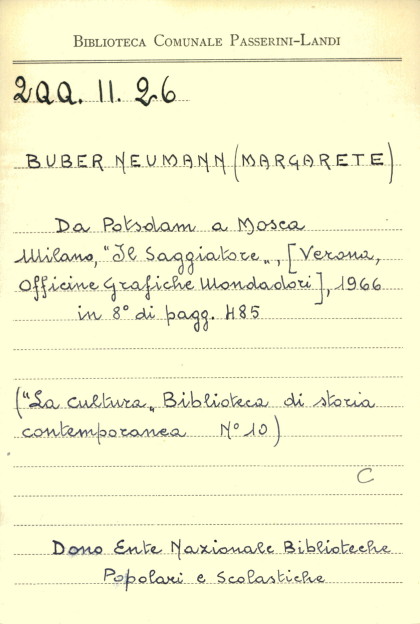 BIBLIOTECA COMUNALE PASSERINI-LANDI
2QQ. 11. 26
BUBER NEUMANN (MARGARETE)
Da Potsdam a Mosca
Milano, "Il Saggiatore„, [Verona,
Officine Grafiche Mondadori], 1966
in 8° di pagg. 485
("La cultura„ Biblioteca di storia
contemporanea N° 10)
C
Dono Ente Nazionale Biblioteche
Popolari e Scolastiche